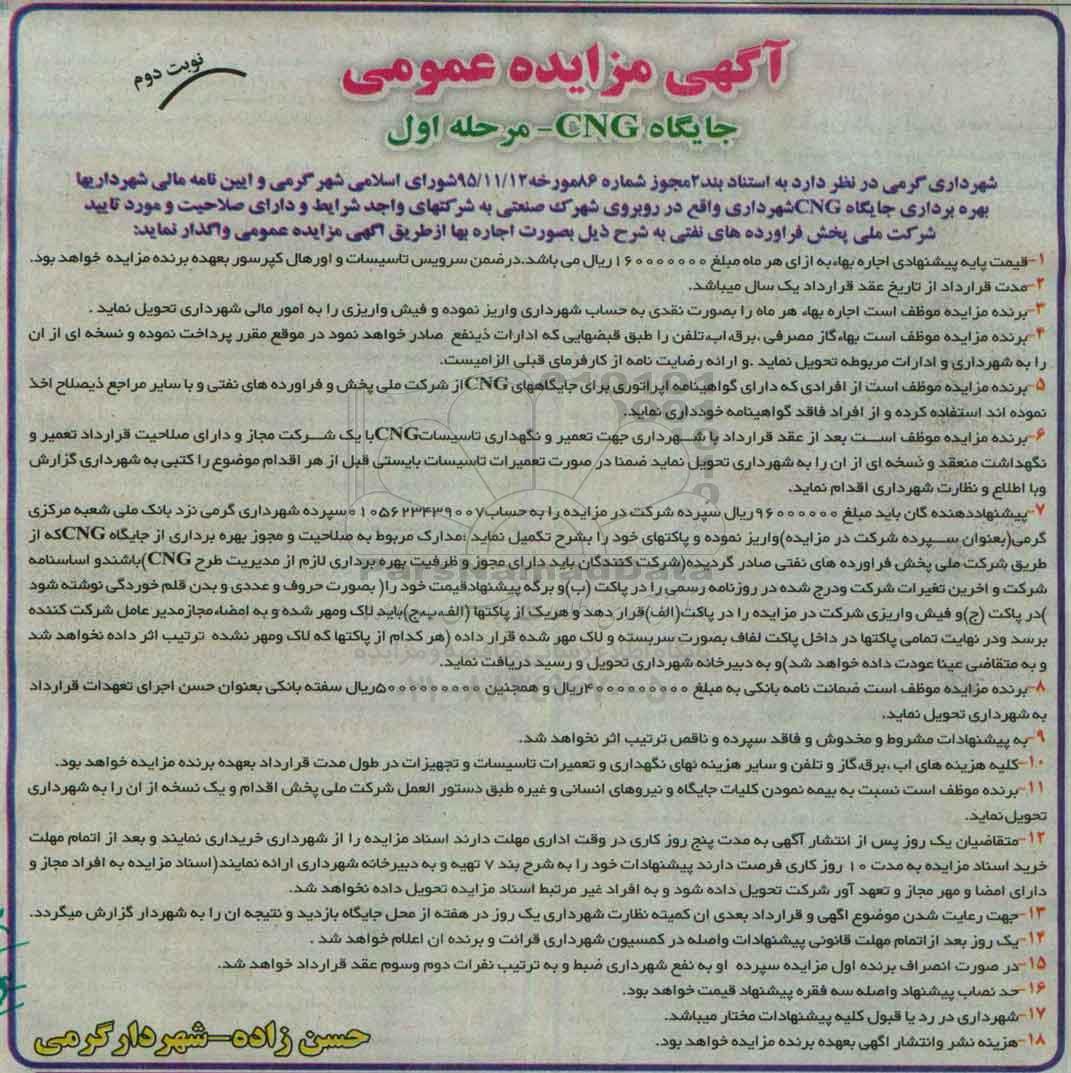 آگهی مزایده عمومی
نوبت دوم
جایگاه CNG - مرحله اول
شهرداری گرمی در نظر دارد به استناد بند۲مجوز شماره ۸۶مورخه۹۵/۱۱/۱۲شورای اسلامی شهر گرمی و ایین نامه مالی شهرداریها
بهره برداری جایگاه CNGشهرداری واقع در روبروی شهرک صنعتی به شرکتهای واجد شرایط و دارای صلاحیت و مورد تایید
شرکت ملی پخش فراورده های نفتی به شرح ذیل بصورت اجاره بها ازطریق اگهی مزایده عمومی واگذار نماید:
۱-قیمت پایه پیشنهادی اجاره بهاءبه ازای هر ماه مبلغ ۱۶۰۰۰۰۰۰۰ریال می باشد.درضمن سرویس تاسیسات و اورهال کپرسور بعهده برنده مزایده خواهد بود.
۲-مدت قرارداد از تاریخ عقد قرارداد یک سال میباشد.
۳-برنده مزایده موظف است اجاره بهاء هر ماه را بصورت نقدی به حساب شهرداری واریز نموده و فیش واریزی را به امور مالی شهرداری تحویل نماید .
۴-برنده مزایده موظف است بهاءگاز مصرفی ،برق،اب،تلفن را طبق قبضهایی که ادارات ذینفع صادر خواهد نمود در موقع مقرر پرداخت نموده و نسخه ای از ان
را به شهرداری و ادارات مربوطه تحویل نماید .و ارائه رضایت نامه از کارفرمای قبلی الزامیست.
۵-برنده مزایده موظف است از افرادی که دارای گواهینامه اپراتوری برای جایگاههای CNGاز شرکت ملی پخش و فراورده های نفتی و با سایر مراجع ذیصلاح اخذ
نموده اند استفاده کرده و از افراد فاقد گواهینامه خودداری نماید.
۶-برنده مزایده موظف است بعد از عقد قرارداد با شهرداری جهت تعمیر و نگهداری تاسیساتCNGبا یک شرکت مجاز و دارای صلاحیت قرارداد تعمیر و
نگهداشت منعقد و نسخه ای از ان را به شهرداری تحویل نماید ضمنا در صورت تعمیرات تاسیسات بایستی قبل از هر اقدام موضوع را کتبی به شهرداری گزارش
وبا اطلاع و نظارت شهرداری اقدام نماید.
۷-پیشنهاددهنده گان باید مبلغ ۹۶۰۰۰۰۰۰ریال سپرده شرکت در مزایده را به حساب۰۱۰۵۶۲۳۴۳۹۰۰۷سپرده شهرداری گرمی نزد بانک ملی شعبه مرکزی
گرمی(بعنوان سپرده شرکت در مزایده)واریز نموده و پاکتهای خود را بشرح تکمیل نماید :مدارک مربوط به صلاحیت و مجوز بهره برداری از جایگاه CNGکه از
طریق شرکت ملی پخش فراورده های نفتی صادر گردیده(شرکت کنندگان باید دارای مجوز و ظرفیت بهره برداری لازم از مدیریت طرح CNG)باشندو اساسنامه
شرکت و اخرین تغیرات شرکت ودرج شده در روزنامه رسمی را در پاکت (ب)و برگه پیشنهادقیمت خود را( بصورت حروف و عددی و بدن قلم خوردگی نوشته شود
)در پاکت (ج)و فیش واریزی شرکت در مزایده را در پاکت(الف)قرار دهد و هریک از پاکتها (الف،ب،ج)باید لاک ومهر شده و به امضاءمجازمدیر عامل شرکت کننده
برسد ودر نهایت تمامی پاکتها در داخل پاکت لفاف بصورت سربسته و لاک مهر شده قرار داده (هر کدام از پاکتها که لاک ومهر نشده ترتیب اثر داده نخواهد شد
و به متقاضی عینا عودت داده خواهد شد)و به دبیرخانه شهرداری تحویل و رسید دریافت نماید.
۸-برنده مزایده موظف است ضمانت نامه بانکی به مبلغ ۴۰۰۰۰۰۰۰۰۰ریال و همچنین ۵۰۰۰۰۰۰۰۰۰ریال سفته بانکی بعنوان حسن اجرای تعهدات قرارداد
به شهرداری تحویل نماید.
۹-به پیشنهادات مشروط و مخدوش و فاقد سپرده و ناقص ترتیب اثر نخواهد شد.
۱۰-کلیه هزینه های اب ،برق،گاز و تلفن و سایر هزینه نهای نگهداری و تعمیرات تاسیسات و تجهیزات در طول مدت قرارداد بعهده برنده مزایده خواهد بود.
۱۱-برنده موظف است نسبت به بیمه نمودن کلیات جایگاه و نیروهای انسانی و غیره طبق دستور العمل شرکت ملی پخش اقدام و یک نسخه از ان را به شهرداری
تحویل نماید.
۱۲-متقاضیان یک روز پس از انتشار آگهی به مدت پنج روز کاری در وقت اداری مهلت دارند اسناد مزایده را از شهرداری خریداری نمایند و بعد از اتمام مهلت
خرید اسناد مزایده به مدت ۱۰ روز کاری فرصت دارند پیشنهادات خود را به شرح بند ۷ تهیه و به دبیرخانه شهرداری ارائه نمایند(اسناد مزایده به افراد مجاز و
دارای امضا و مهر مجاز و تعهد آور شرکت تحویل داده شود و به افراد غیر مرتبط اسناد مزایده تحویل داده نخواهد شد.
۱۳-جهت رعایت شدن موضوع اگهی و قرارداد بعدی ان کمیته نظارت شهرداری یک روز در هفته از محل جایگاه بازدید و نتیجه ان را به شهردار گزارش میگردد.
۱۴-یک روز بعد ازاتمام مهلت قانونی پیشنهادات واصله در کمسیون شهرداری قرائت و برنده ان اعلام خواهد شد .
۱۵-در صورت انصراف برنده اول مزایده سپرده او به نفع شهرداری ضبط و به ترتیب نفرات دوم وسوم عقد قرارداد خواهد شد.
۱۶-حد نصاب پیشنهاد واصله سه فقره پیشنهاد قیمت خواهد بود.
۱۷-شهرداری در رد یا قبول کلیه پیشنهادات مختار میباشد.
۱۸-هزینه نشر وانتشار اگهی بعهده برنده مزایده خواهد بود.
حسن زاده-شهردار گرمی